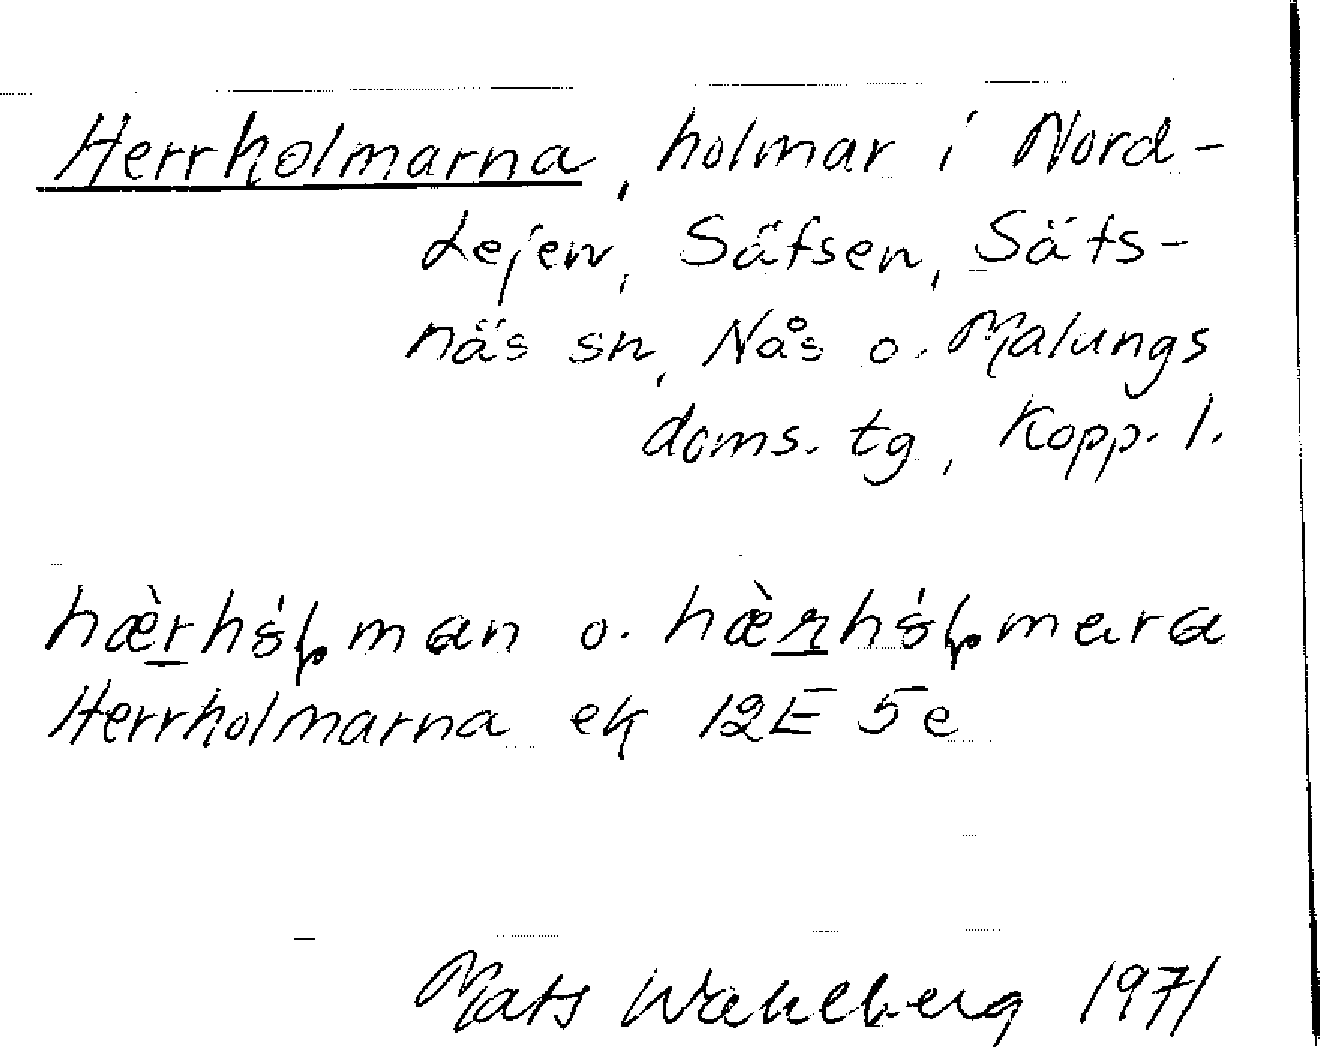 Herrholmarna, holmar i Nord-
Lejen, Säfsen, Säfs-
näs sn, Nås o. Malungs
doms. tg, Kopp. l.
o.
Herrholmarna ek 12E 5e
Mats Wahlberg 1971